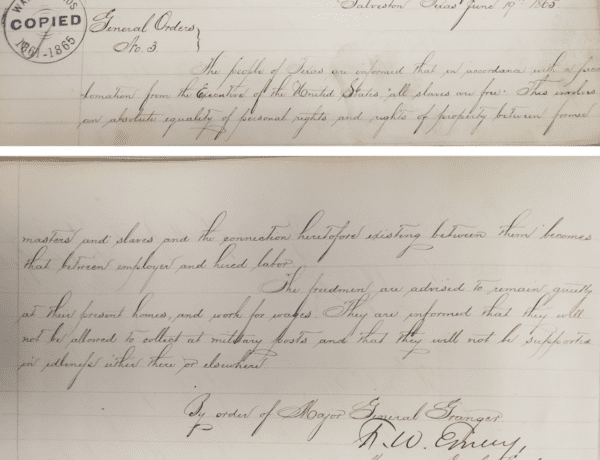 WAR RECORDS
COPIED
1861-1865
Galveston Texas June 19th 1865.
General Orders
No. 3
The people of Texas are informed that in accordance with a proc
lamation from the Executive of the United States, "all slaves are free." This involves
an absolute equality of personal rights and rights of property between former
masters and slaves and the connection heretofore existing between them becomes
that between employer and hired labor.
The freedmen are advised to remain quietly
at their present homes, and work for wages. They are informed that they will
not be allowed to collect at military posts and that they will not be supported
in idleness either there or elsewhere.
By order of Major General Granger
F. W. Emery,